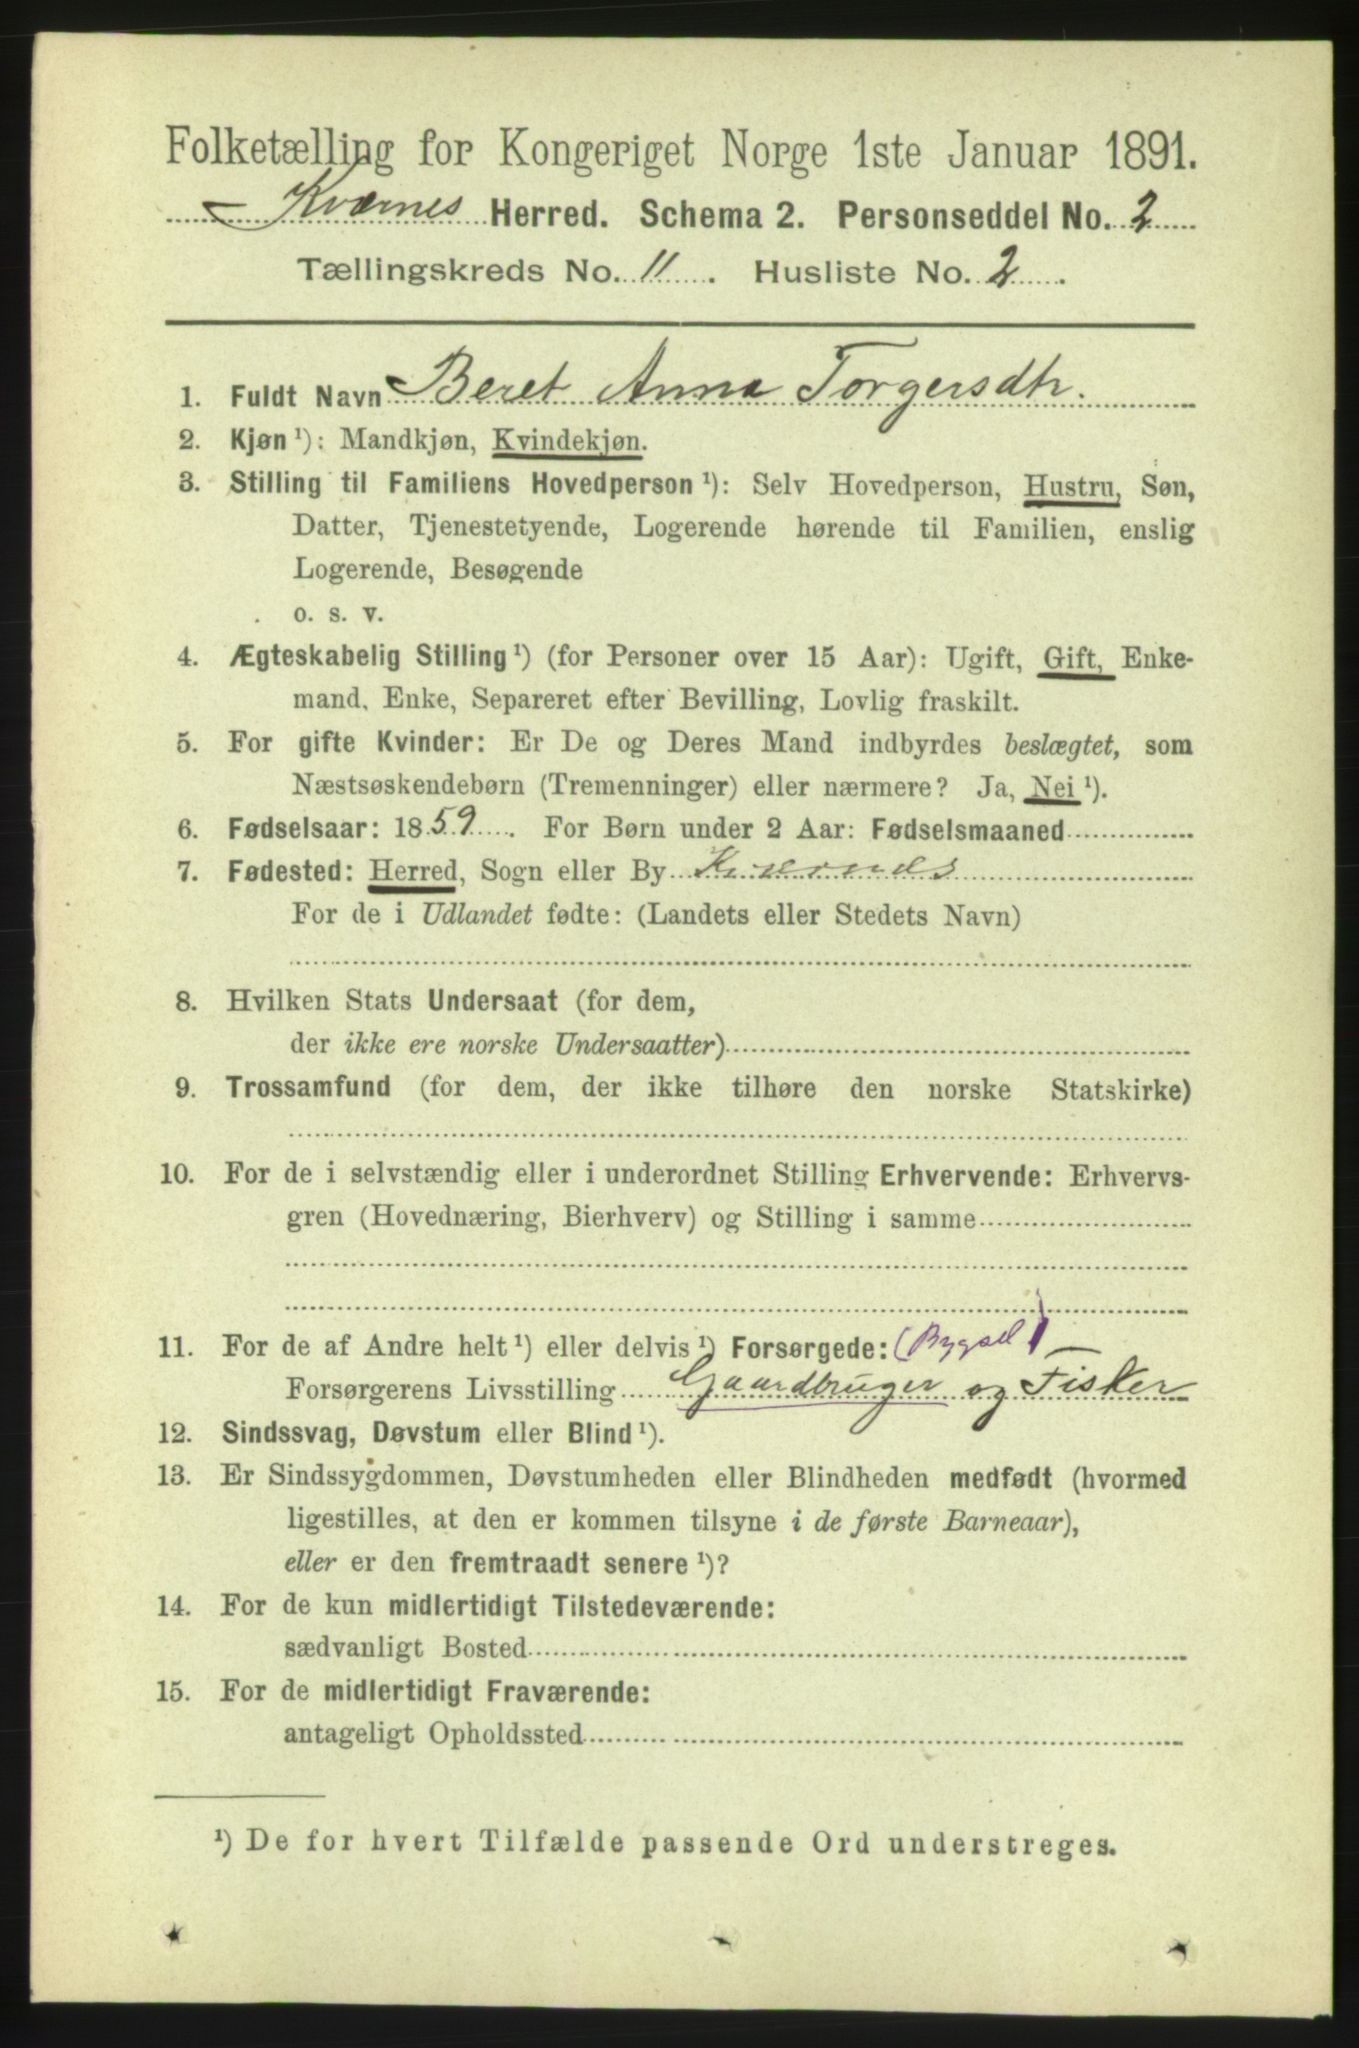 Folketælling for Kongeriget Norge 1ste Januar 1891.
Kvernes Herred. Schema 2. Personseddel No. 2
Tællingskreds No. 11. Husliste No. 2.
1. Fuldt Navn Beret Anna Torgersdtr.
2. Kjøn ¹): Mandkjøn, Kvindekjøn.
3. Stilling til Familiens Hovedperson ¹): Selv Hovedperson, Hustru, Søn,
Datter, Tjenestetyende, Logerende hørende til Familien, enslig
Logerende, Besøgende
o. s. v.
4. Ægteskabelig Stilling ¹) (for Personer over 15 Aar): Ugift, Gift, Enke-
mand, Enke, Separeret efter Bevilling, Lovlig fraskilt.
5. For gifte Kvinder: Er De og Deres Mand indbyrdes beslægtet, som
Næstsøskendebørn (Tremenninger) eller nærmere? Ja, Nei ¹).
6. Fødselsaar: 1859. For Børn under 2 Aar: Fødselsmaaned
7. Fødested: Herred, Sogn eller By Kvernes
For de i Udlandet fødte: (Landets eller Stedets Navn)
8. Hvilken Stats Undersaat (for dem,
der ikke ere norske Undersaatter)
9. Trossamfund (for dem, der ikke tilhøre den norske Statskirke)
10. For de i selvstændig eller i underordnet Stilling Erhvervende: Erhvervs-
gren (Hovednæring, Bierhverv) og Stilling i samme
11. For de af Andre helt ¹) eller delvis ¹) Forsørgede: (Bygsel)
Forsørgerens Livsstilling Gaardbruger og Fisker
12. Sindssvag, Døvstum eller Blind ¹).
13. Er Sindssygdommen, Døvstumheden eller Blindheden medfødt (hvormed
ligestilles, at den er kommen tilsyne i de første Barneaar),
eller er den fremtraadt senere ¹)?
14. For de kun midlertidigt Tilstedeværende:
sædvanligt Bosted
15. For de midlertidigt Fraværende:
antageligt Opholdssted
¹) De for hvert Tilfælde passende Ord understreges.